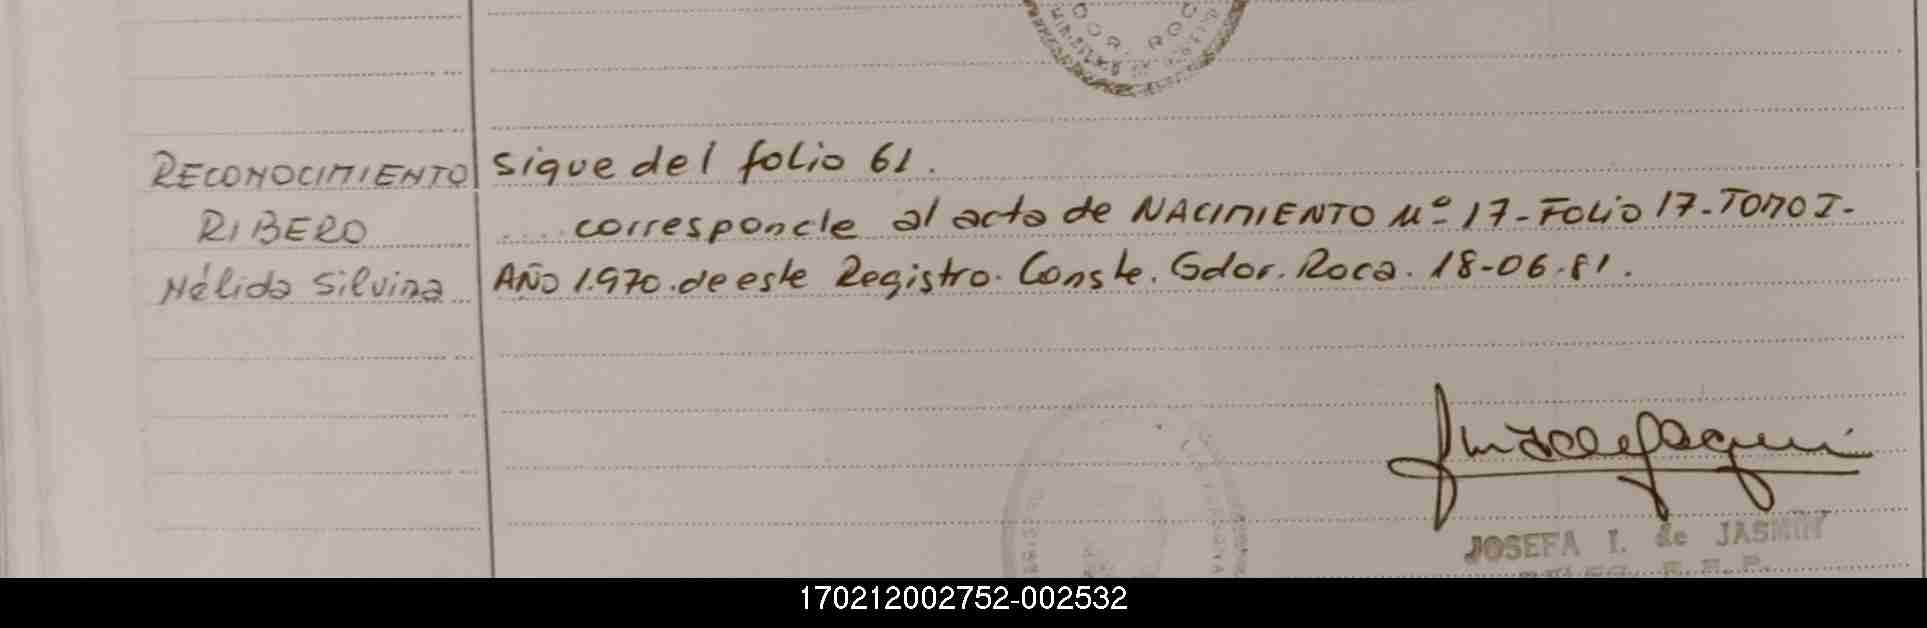 RECONOCIMIENTO
RIBERO
Nélida Silvina
Sigue del folio 61.
.... corresponde al acta de NACIMIENTO Nº 17-FOLIO 17-TOMO I-
AÑO 1.970. de este Registro. Conste. Gdor. Roca. 18-06-81.
JOSEFA I. de JASMIN
170212002752-002532